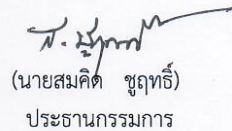 (นายสมคิด ชูฤทธิ์)
ประธานกรรมการ